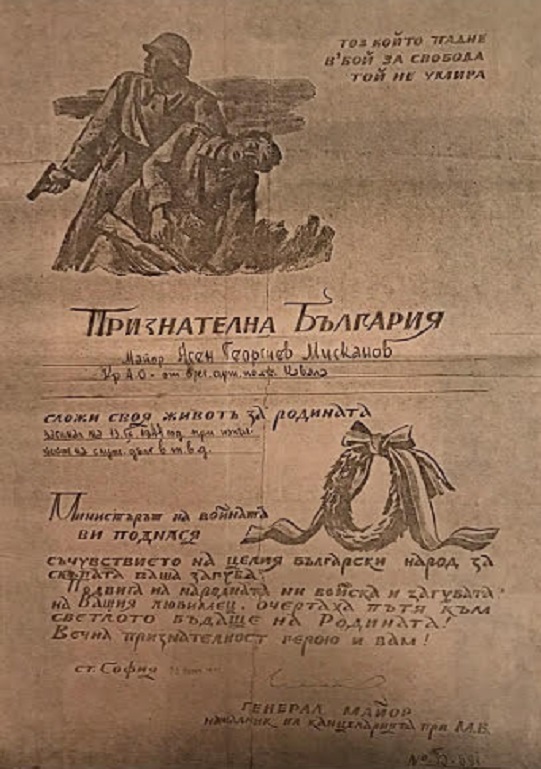 ТОЗ КОЙТО ПАДНЕ
В'БОЙ ЗА СВОБОДА
ТОЙ НЕ УМИРА
ПРИЗНАТЕЛНА БЪЛГАРИЯ
Майор Асен Георгиев Мисканов
сложи своя животъ за родината
Министърът на войната
ви поднася
съчувствието на целия български народ за
скъпата ваша загуба.
Подвига на народната ни войска и загубата
на Вашия любимец, очертаха пътя към
светлото бъдаще на Родината!
Вечна признателност герою и вам!
ст. София
ГЕНЕРАЛ МАЙОР
началник на канцеларията при М.В.